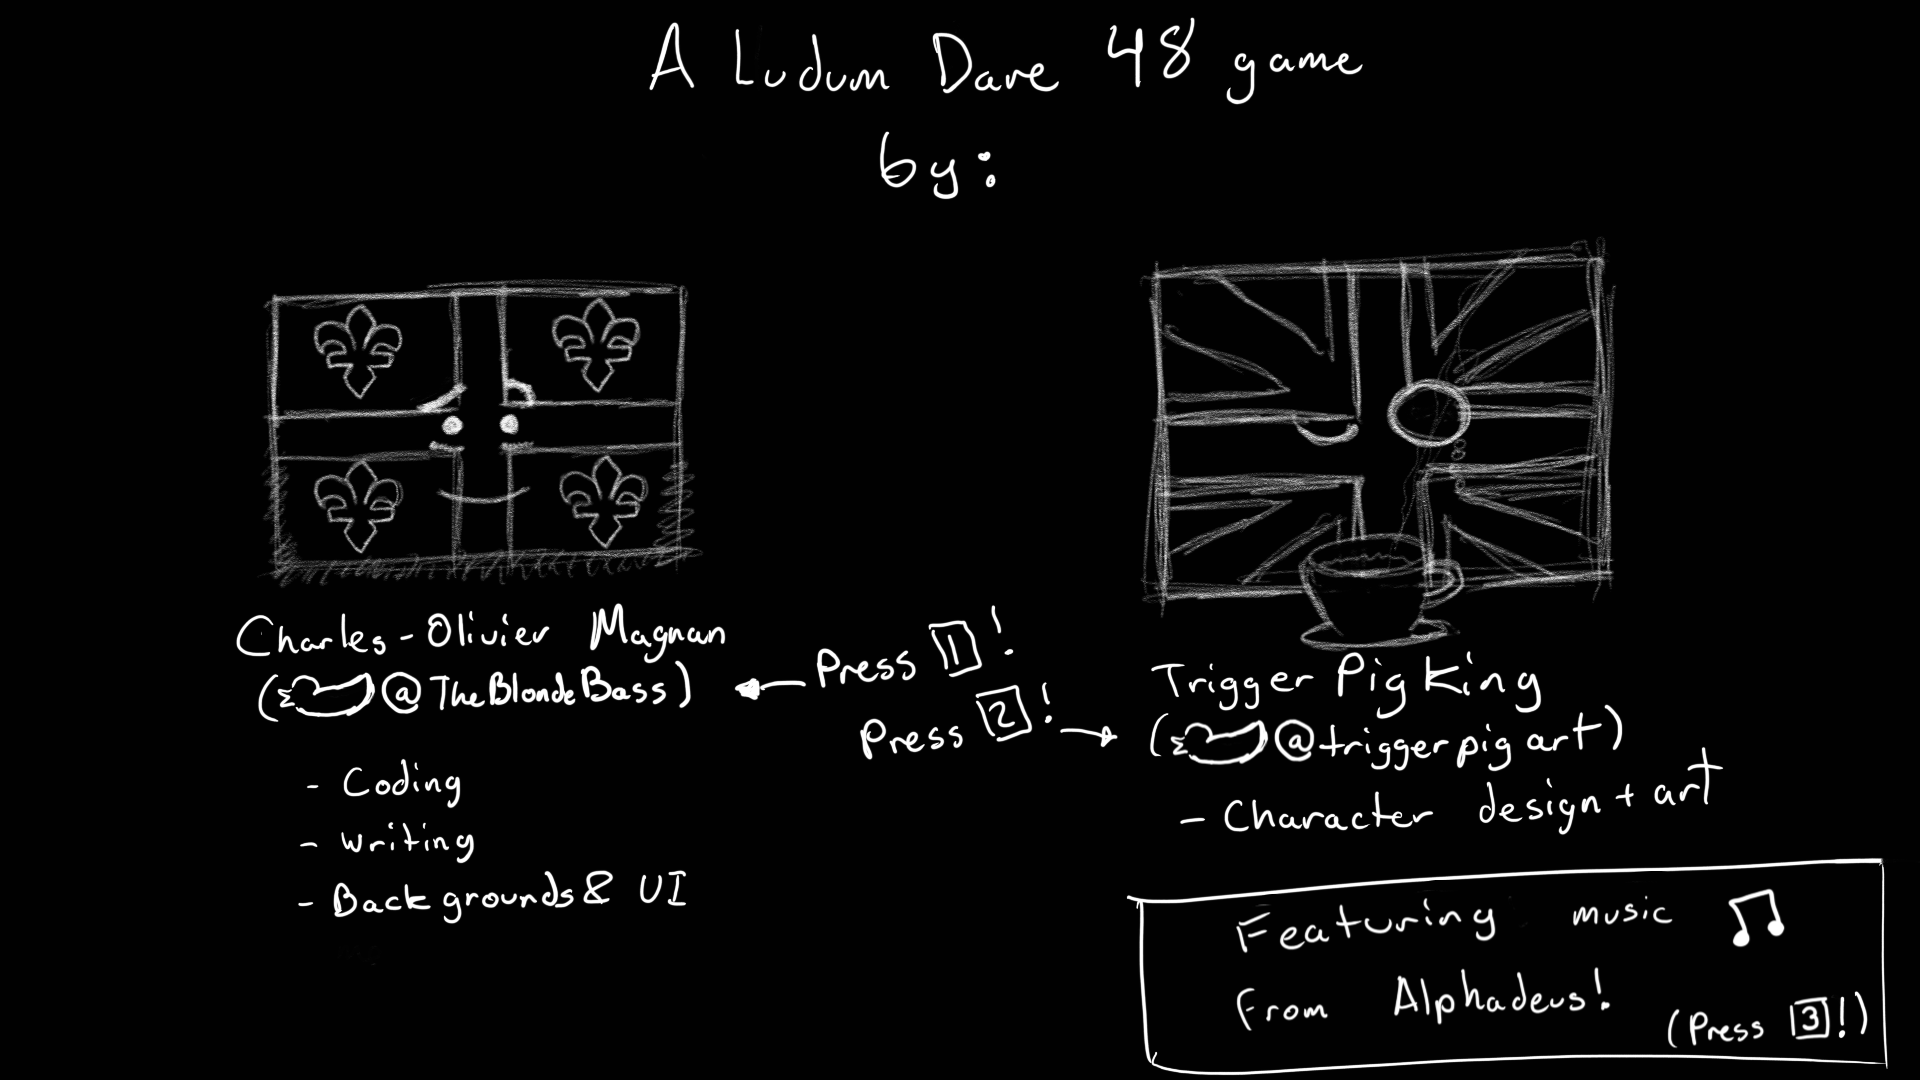 A Ludum Dare 48 game
by:
Charles-Olivier Magnan
(@TheBlondeBass)
- Coding
- Writing
- Backgrounds & UI
Press 1!
Press 2!
Trigger Pig King
(@triggerpigart)
- Character design + art
Featuring music
From Alphadeus!
(Press 3!)